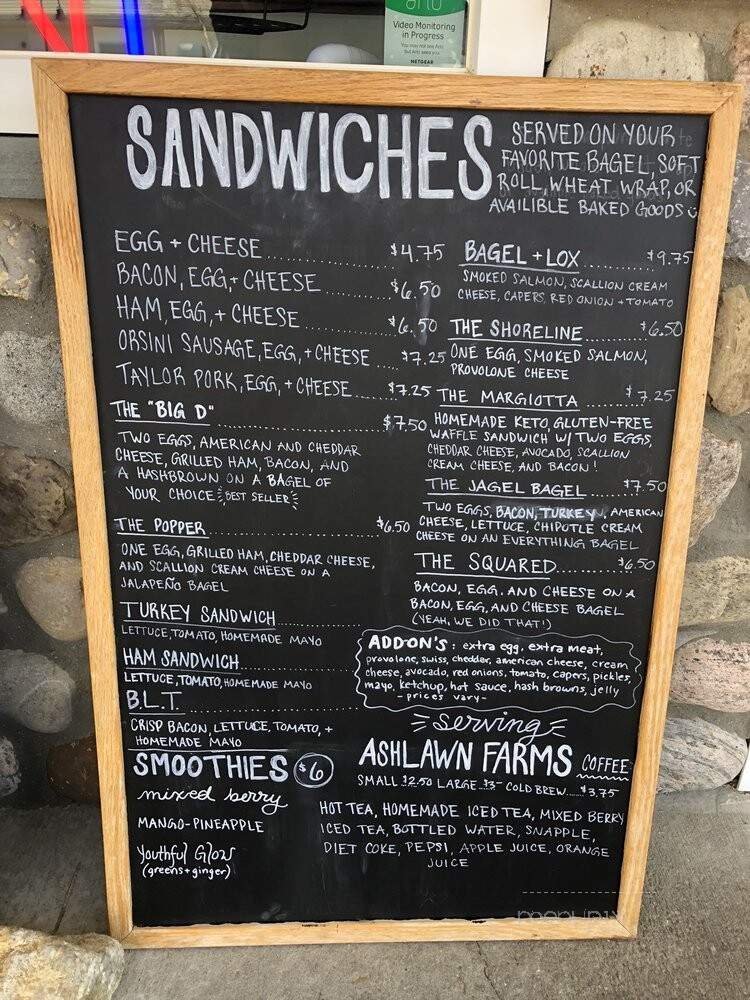 arlo
Video Monitoring
in Progress
You may not see Arlo
but Arlo sees you.
NETGEAR
SANDWICHES
SERVED ON YOUR
FAVORITE BAGEL, SOFT
ROLL, WHEAT WRAP, OR
AVAILIBLE BAKED GOODS
EGG + CHEESE ............... $4.75
BACON, EGG, + CHEESE ......... $6.50
HAM, EGG, + CHEESE ............ $6.50
ORSINI SAUSAGE, EGG, + CHEESE .... $7.25
TAYLOR PORK, EGG, + CHEESE ...... $7.25
THE "BIG D" ......................... $7.50
TWO EGGS, AMERICAN AND CHEDDAR
CHEESE, GRILLED HAM, BACON, AND
A HASHBROWN ON A BAGEL OF
YOUR CHOICE BEST SELLER
THE POPPER ......................... $6.50
ONE EGG, GRILLED HAM, CHEDDAR CHEESE,
AND SCALLION CREAM CHEESE ON A
JALAPEÑO BAGEL
TURKEY SANDWICH ............
LETTUCE, TOMATO, HOMEMADE MAYO
HAM SANDWICH ................
LETTUCE, TOMATO, HOMEMADE MAYO
B.L.T. .........................
CRISP BACON, LETTUCE, TOMATO, +
HOMEMADE MAYO
SMOOTHIES $6
mixed berry
MANGO-PINEAPPLE
Youthful Glow
(greens + ginger)
BAGEL + LOX .......... $9.75
SMOKED SALMON, SCALLION CREAM
CHEESE, CAPERS, RED ONION + TOMATO
THE SHORELINE ......... $6.50
ONE EGG, SMOKED SALMON,
PROVOLONE CHEESE
THE MARGIOTTA ....... $7.25
HOMEMADE KETO, GLUTEN-FREE
WAFFLE SANDWICH W/ TWO EGGS,
CHEDDAR CHEESE, AVOCADO, SCALLION
CREAM CHEESE, AND BACON!
THE JAGEL BAGEL ...... $7.50
TWO EGGS, BACON, TURKEY, AMERICAN
CHEESE, LETTUCE, CHIPOTLE CREAM
CHEESE ON AN EVERYTHING BAGEL
THE SQUARED .......... $6.50
BACON, EGG, AND CHEESE ON A
BACON, EGG, AND CHEESE BAGEL
(YEAH, WE DID THAT!)
ADD-ON'S: extra egg, extra meat,
provolone, swiss, cheddar, american cheese, cream
cheese, avocado, red onions, tomato, capers, pickles,
mayo, ketchup, hot sauce, hash browns, jelly
- prices vary -
serving
ASHLAWN FARMS COFFEE
SMALL $2.50 LARGE $3- COLD BREW .... $3.75
HOT TEA, HOMEMADE ICED TEA, MIXED BERRY
ICED TEA, BOTTLED WATER, SNAPPLE,
DIET COKE, PEPSI, APPLE JUICE, ORANGE
JUICE
menupix